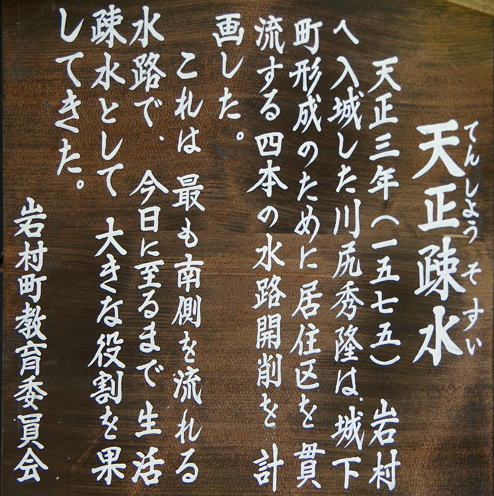 天正疎水
てんしようそすい
天正三年（一五七五）岩村
へ入城した川尻秀隆は、城下
町形成のために居住区を貫
流する四本の水路開削を計
画した。
これは最も南側を流れる
水路で、今日に至るまで生活
疎水として大きな役割を果
してきた。
岩村町教育委員会